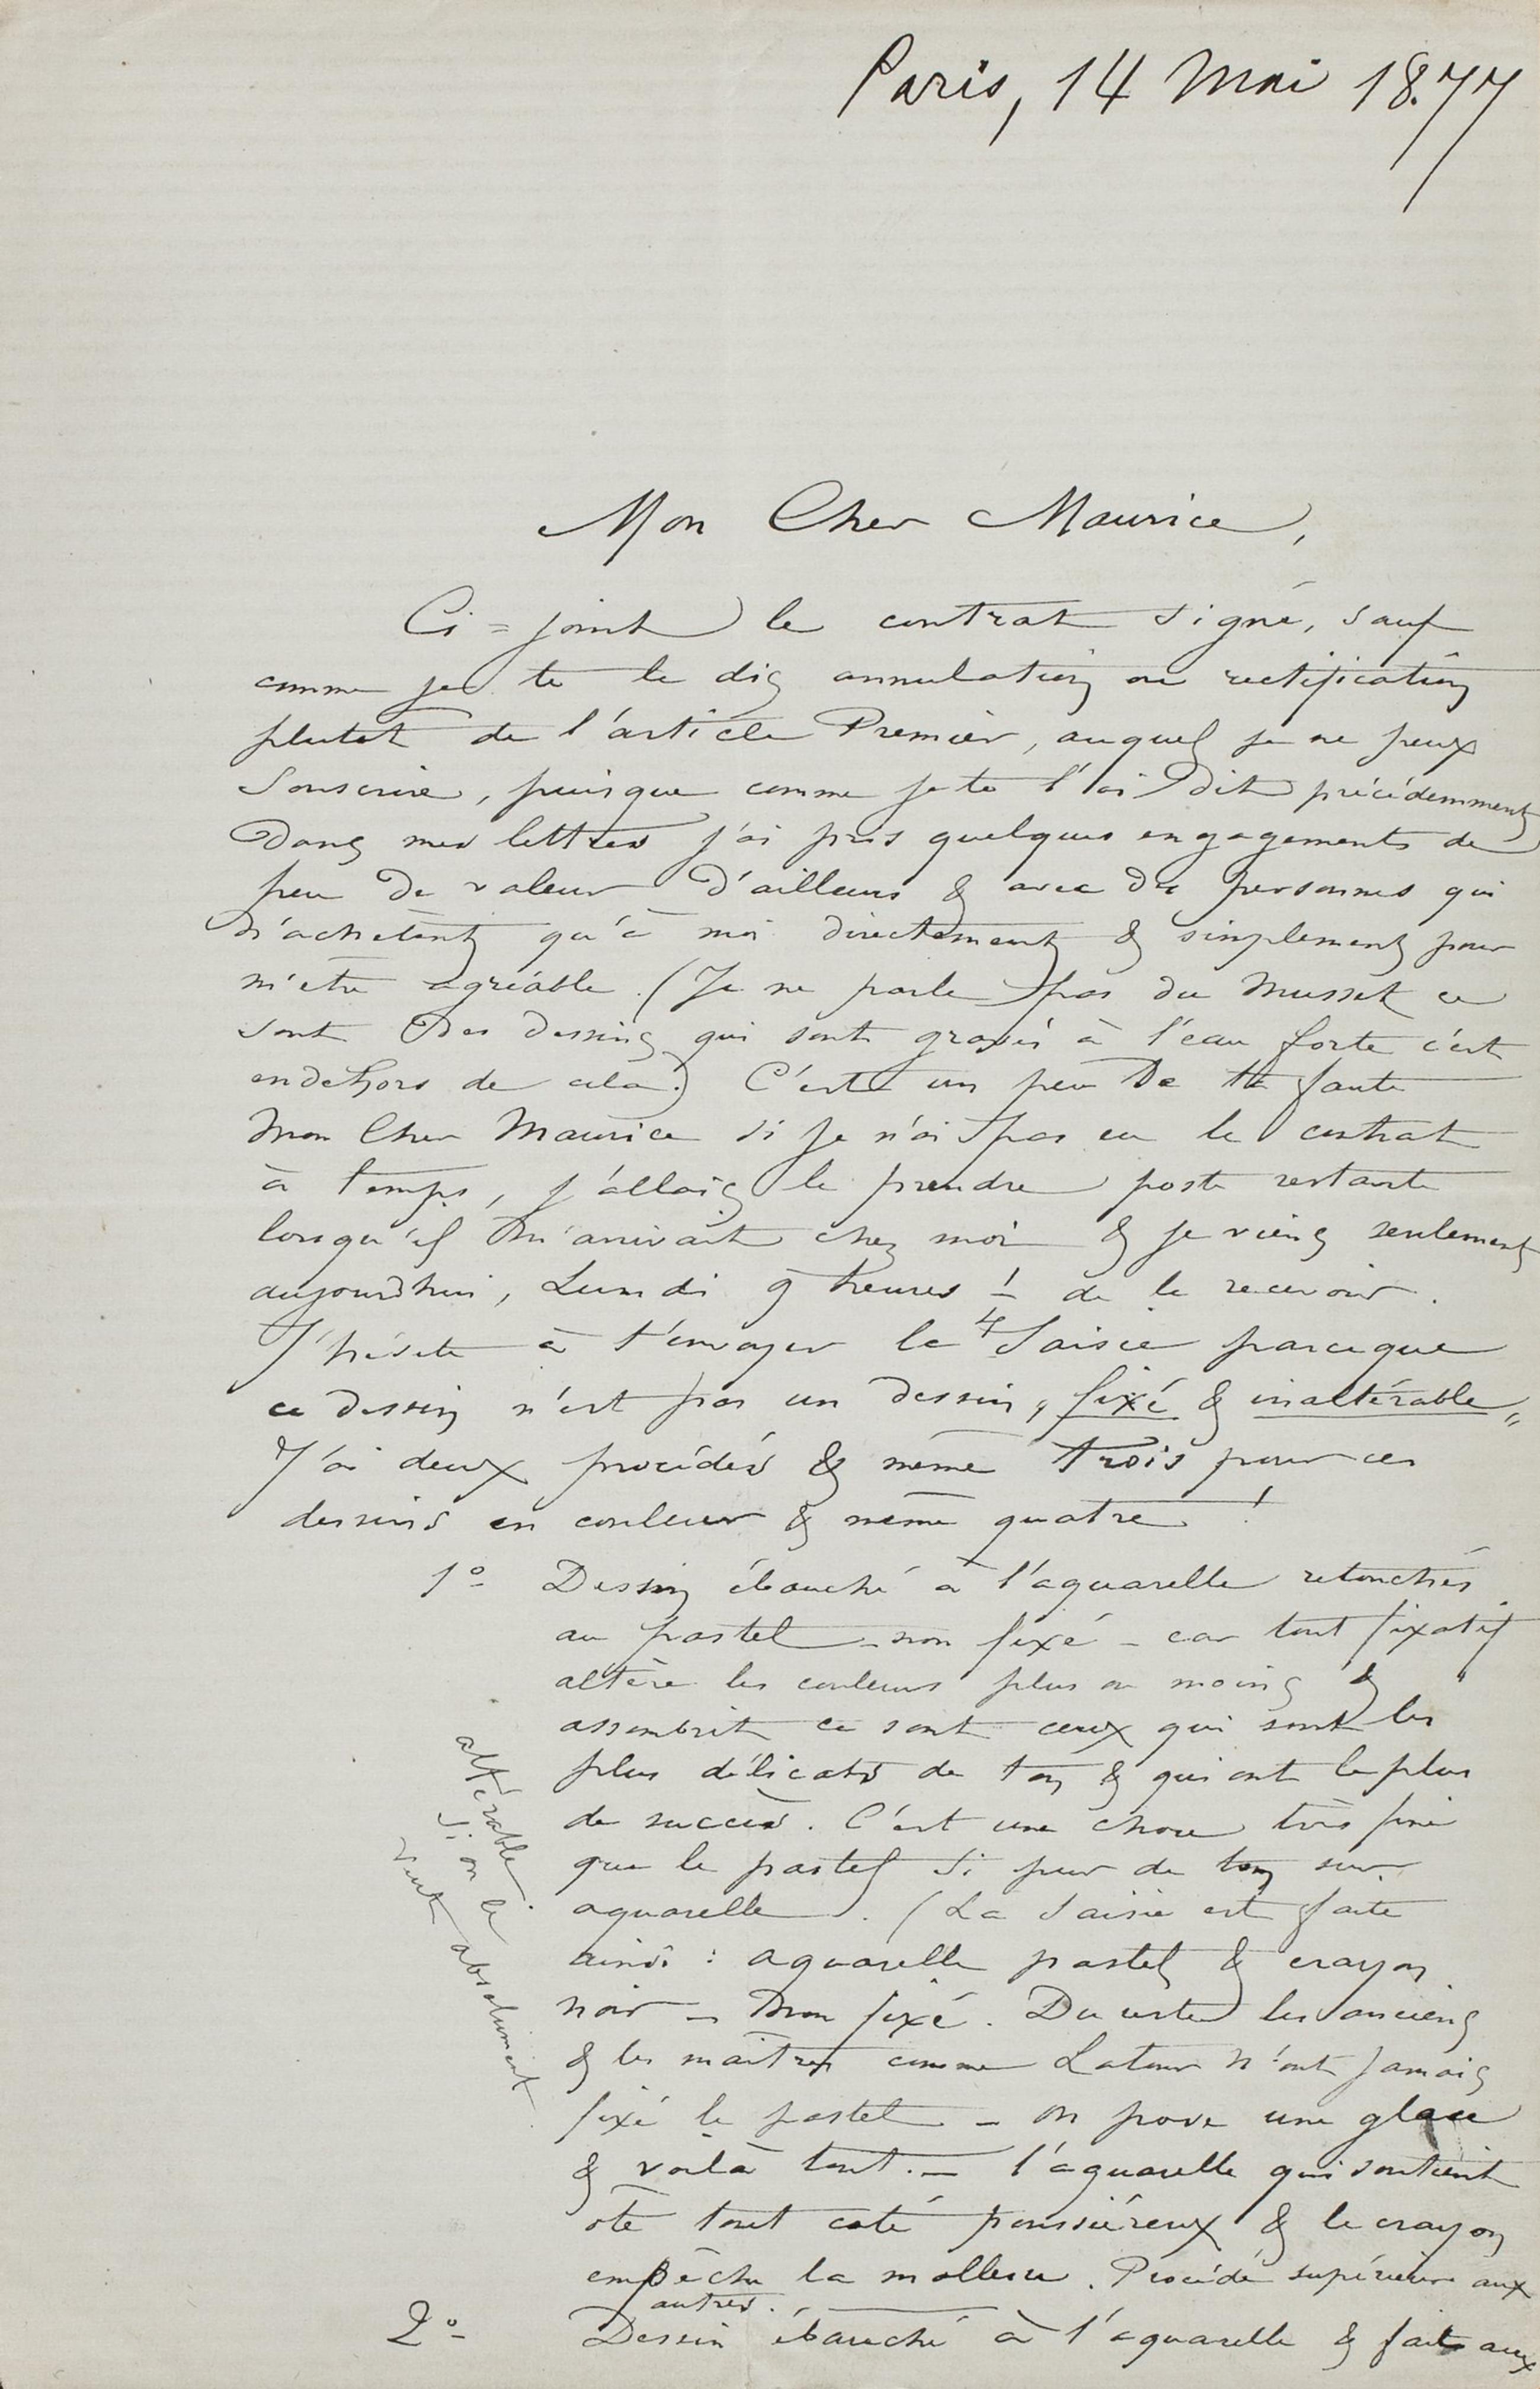 Paris, 14 Mai 1877
Mon Cher Maurice,
Ci=joint le contrat signé, sauf
comme je te le dis annulation ou rectification
plutot de l'article Premier, auquel je ne peux
souscrire, puisque comme je te l'ai dit précédemment
dans mes lettres j'ai pris quelques engagements de
peu de valeur d'ailleurs & avec des personnes qui
n'achètent qu'à moi directement & simplement pour
m'être agréable. (Je ne parle pas du Musset ce
sont des dessins qui sont gravés à l'eau forte c'est
endehors de cela.) C'est un peu de ta faute
Mon Cher Maurice si je n'ai pas eu le contrat
à temps, j'allais le prendre poste restante
lorsqu'il m'arrivait chez moi & je viens seulement
aujourdhui, Lundi 9 heures ¼ de le recevoir.
J'hésite à t'envoyer la Saisie parceque
ce dessin n'est pas un dessin „fixé & inaltérable„
J'ai deux procédés & même trois pour ces
dessins en couleur & même quatre !
1º Dessin ébauché à l'aquarelle retouchés
au pastel _ non fixé _ car tout fixatif
altère les couleurs plus ou moins &
assombrit ce sont ceux qui sont les
plus délicats de ton & qui ont le plus
de succès. C'est une chose très fine
que le pastel si pur de ton sur
aquarelle. (La Saisie est faite
ainsi : aquarelle pastel & crayon
noir _ non fixé. Du reste les anciens
& les maîtres comme Latour n'ont jamais
fixé le pastel _ on pose une glace
& voilà tout. _ l'aquarelle qui soutient
ôte tout coté poussiéreux & le crayon
empêche la mollesse. Procédé supérieur aux
autres.
altérable
si on le
veut absolument
2º Dessin ébauché à l'aquarelle & fait aux